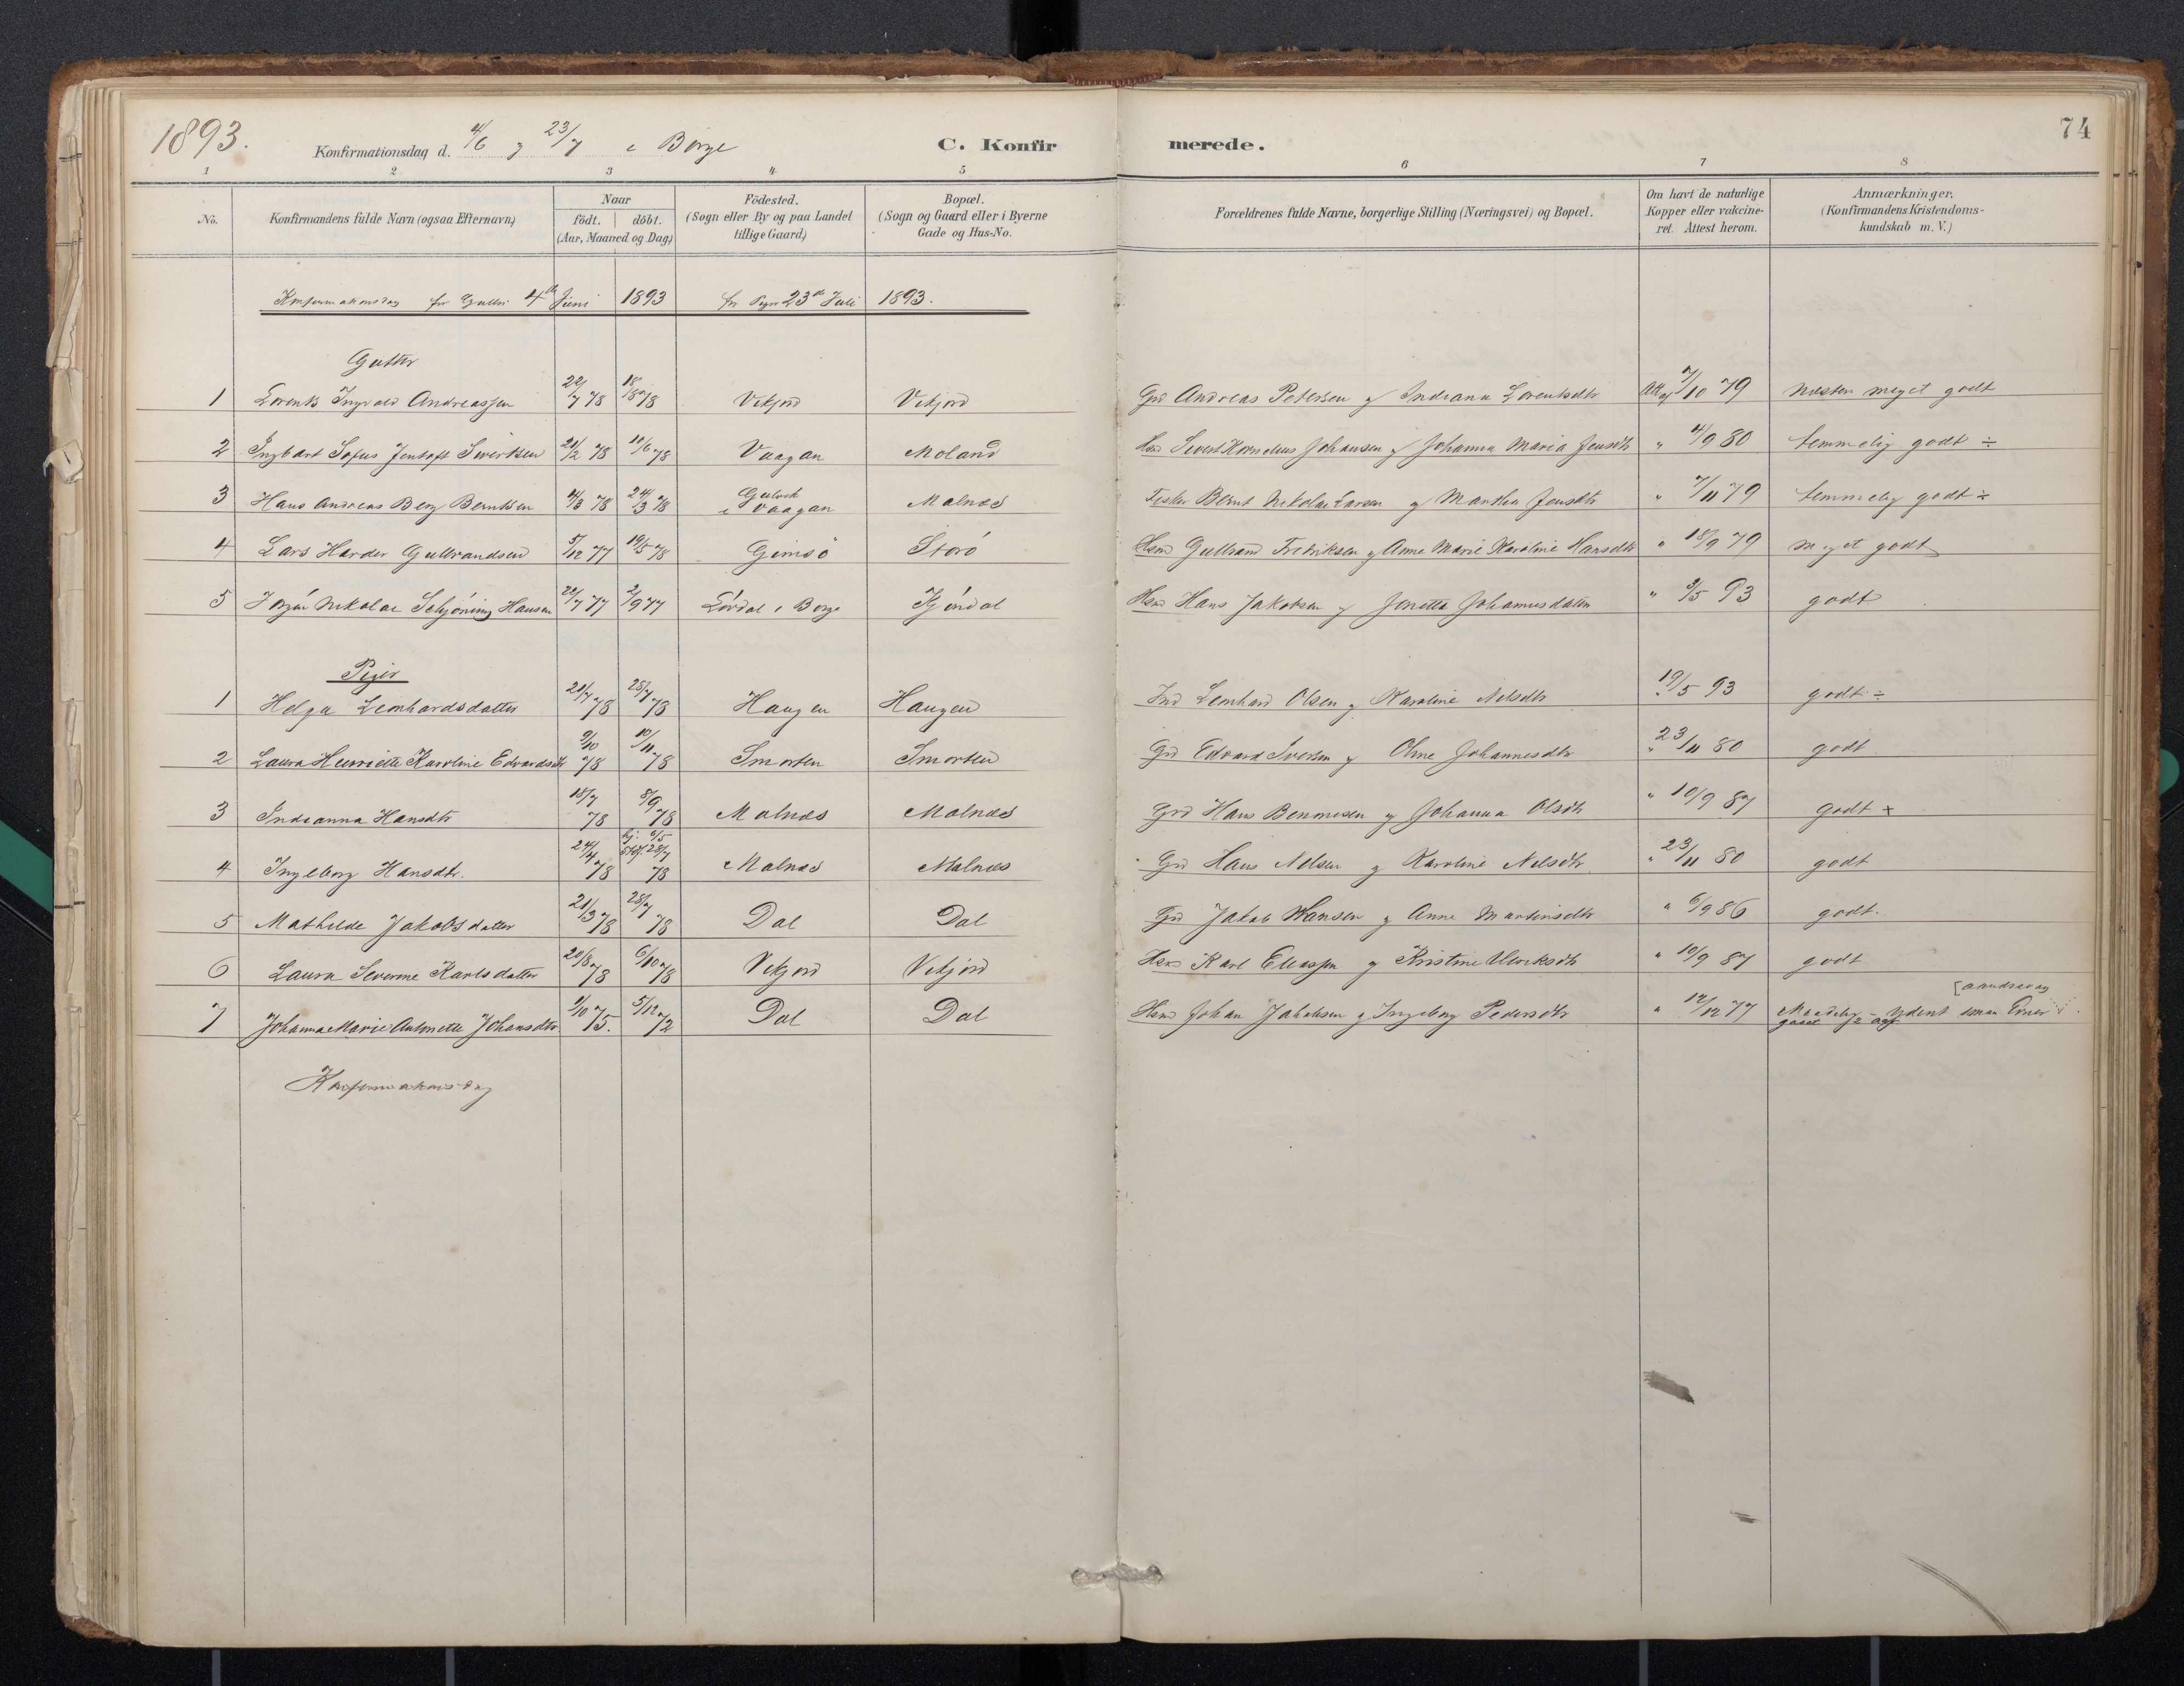 1893. Konfirmationsdag d. 4/6 og 23/7 i Borge C. Konfirmerede. 74
1 2 3 4 5 6 7 8
No. Konfirmandens fulde Navn (ogsaa Efternavn) Naar födt. döbt. (Aar, Maaned og Dag) Födested. (Sogn eller By og paa Landet tillige Gaard) Bopæl. (Sogn og Gaard eller i Byerne Gade og Hus-No. Forældrenes fulde Navne, borgerlige Stilling (Næringsvei) og Bopæl. Om havt de naturlige Kopper eller vakcineret. Attest herom. Anmærkninger, (Konfirmandens Kristendomskundskab m. V.)
Konfirmationsdag for Gutter 4de Juni 1893 for Piger 23de Juli 1893.
Gutter
1 Lorents Ingvald Andreassen 22/7 78 18/8 78 Vikjord Vikjord Grd Andreas Petersen og Indiana Lorentsdtr Att af 7/10 79 næsten meget godt
2 Ingbart Sofus Jentoft Sivertsen 21/2 78 10/6 78 Vaagan Moland Hsmd Sivert Kornelius Johansen og Johanna Maria Jensdtr " 4/9 80 temmelig godt ÷
3 Hans Andreas Berg Berntsen 4/3 78 24/3 78 i Vaagan Malnæs Fisker Bernt Nikolai Larsen og Martha Jensdtr " 7/11 79 temmelig godt ÷
4 Lars Harder Gulbrandsen 5/12 77 19/5 78 Gimsö Storö Hsmd Gulbrand Fredriksen og Anne Marie Karoline Hansdtr " 18/9 79 meget godt
5 Jörgen Nikolai Schjöning Hansen 22/7 77 2/9 77 Lövdal i Borge Kjöndal Hsmd Hans Jakobsen og Jonetta Johannesdatter " 3/5 93 godt
Piger
1 Helga Leonhardsdatter 21/7 78 28/7 78 Haugen Haugen Ind Leonhard Olsen og Karoline Nilsdtr 19/5 93 godt ÷
2 Laura Henriette Karoline Edvardsdtr 9/10 78 10/11 78 Smorten Smorten Grd Edvard Iversen og Oline Johannesdtr " 23/11 80 godt
3 Indianna Hansdtr 18/7 78 8/9 78 Malnæs Malnæs Grd Hans Benonisen og Johanna Olsdtr " 10/9 87 godt +
4 Ingeborg Hansdtr. 24/4 78 hj: 6/5 stdf. 28/7 78 Malnæs Malnæs Grd Hans Nilsen og Karoline Nilsdtr. " 23/11 80 godt
5 Mathilde Jakobsdatter 21/3 78 28/7 78 Dal Dal Grd Jakob Hansen og Anne Martinsdtr " 6/9 86 godt.
6 Laura Severine Karlsdatter 20/8 78 6/10 78 Vikjord Vikjord Hsmd Karl Eliassen og Kristine Ulriksdtr " 10/9 87 godt
7 Johanna Marie Antonette Johansdtr 9/10 75. 5/12 72 Dal Dal Hsmd Johan Jakobsen og Ingeborg Pedersdtr " 12/12 77 Maadelig – ydent
Konfirmationsdag